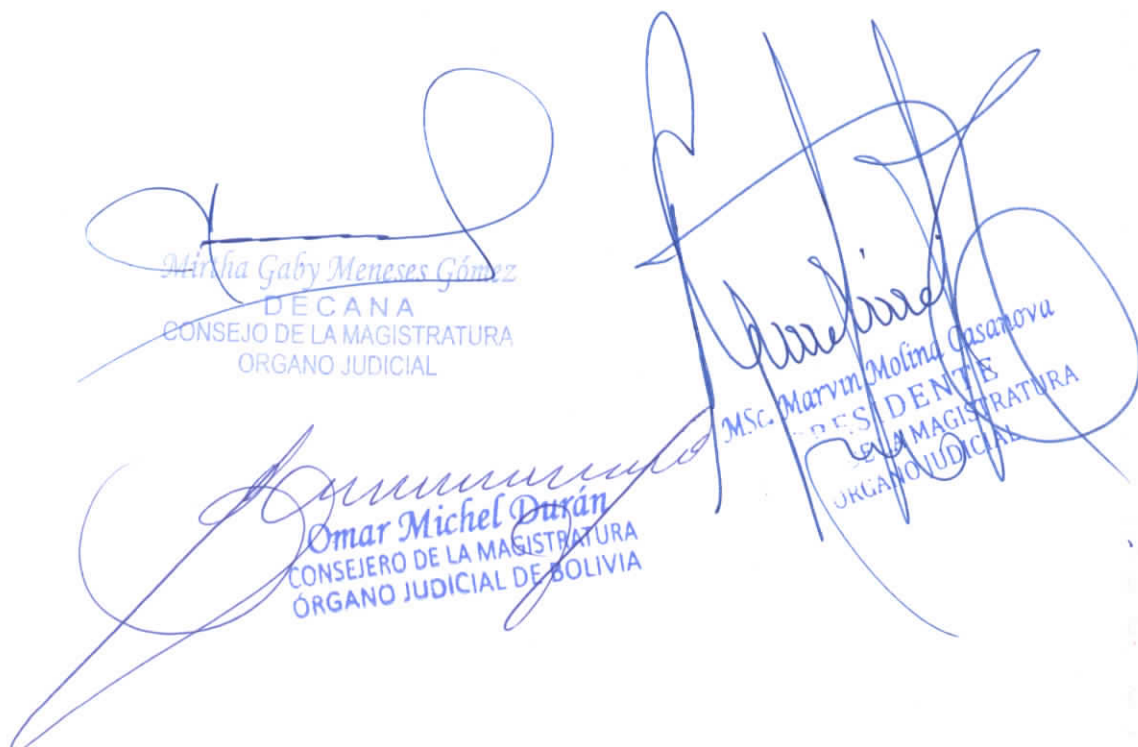 Mirtha Gaby Meneses Gómez
DECANA
CONSEJO DE LA MAGISTRATURA
ORGANO JUDICIAL
MSc. Marvin Molina Casanova
PRESIDENTE
DE LA MAGISTRATURA
ORGANO JUDICIAL
Omar Michel Durán
CONSEJERO DE LA MAGISTRATURA
ÓRGANO JUDICIAL DE BOLIVIA